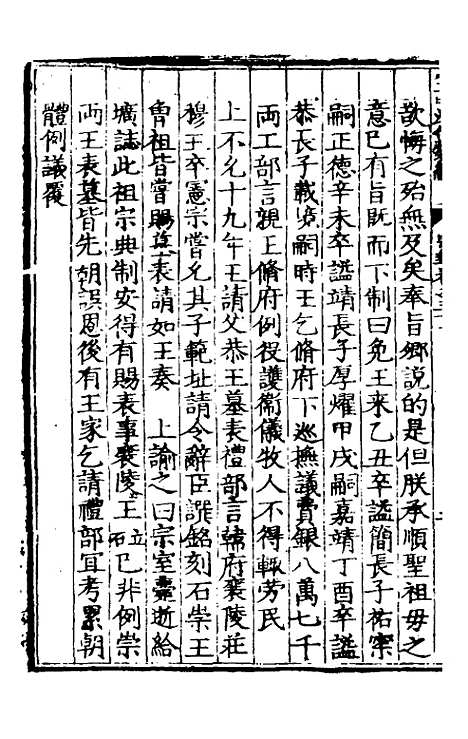 欲悔之殆無及矣奉旨鄉說的是但朕承順聖祖毋之
意已有旨既而下制曰免王來乙丑卒謚簡長子祐寀
嗣正德辛未卒謚靖長子厚燿甲戌嗣嘉靖丁酉卒謚
恭長子載境嗣時王乞脩府下巡撫議費銀八萬七千
兩工部言親王脩府例役護衞儀牧人不得輙劳民
上不允十九年王請父恭王墓表禮部言韓府襄陵莊
穆王卒憲宗嘗允其子範址請令辭臣譔銘刻石崇王
魯祖皆嘗賜墓表請如王奏 上諭之曰宗室薨逝給
壙誌此祖宗典制安得有賜表事襄陵王立石已非例崇
府王表墓皆先朝誤恩後有王家乞請禮部宜考累朝
體例議覆